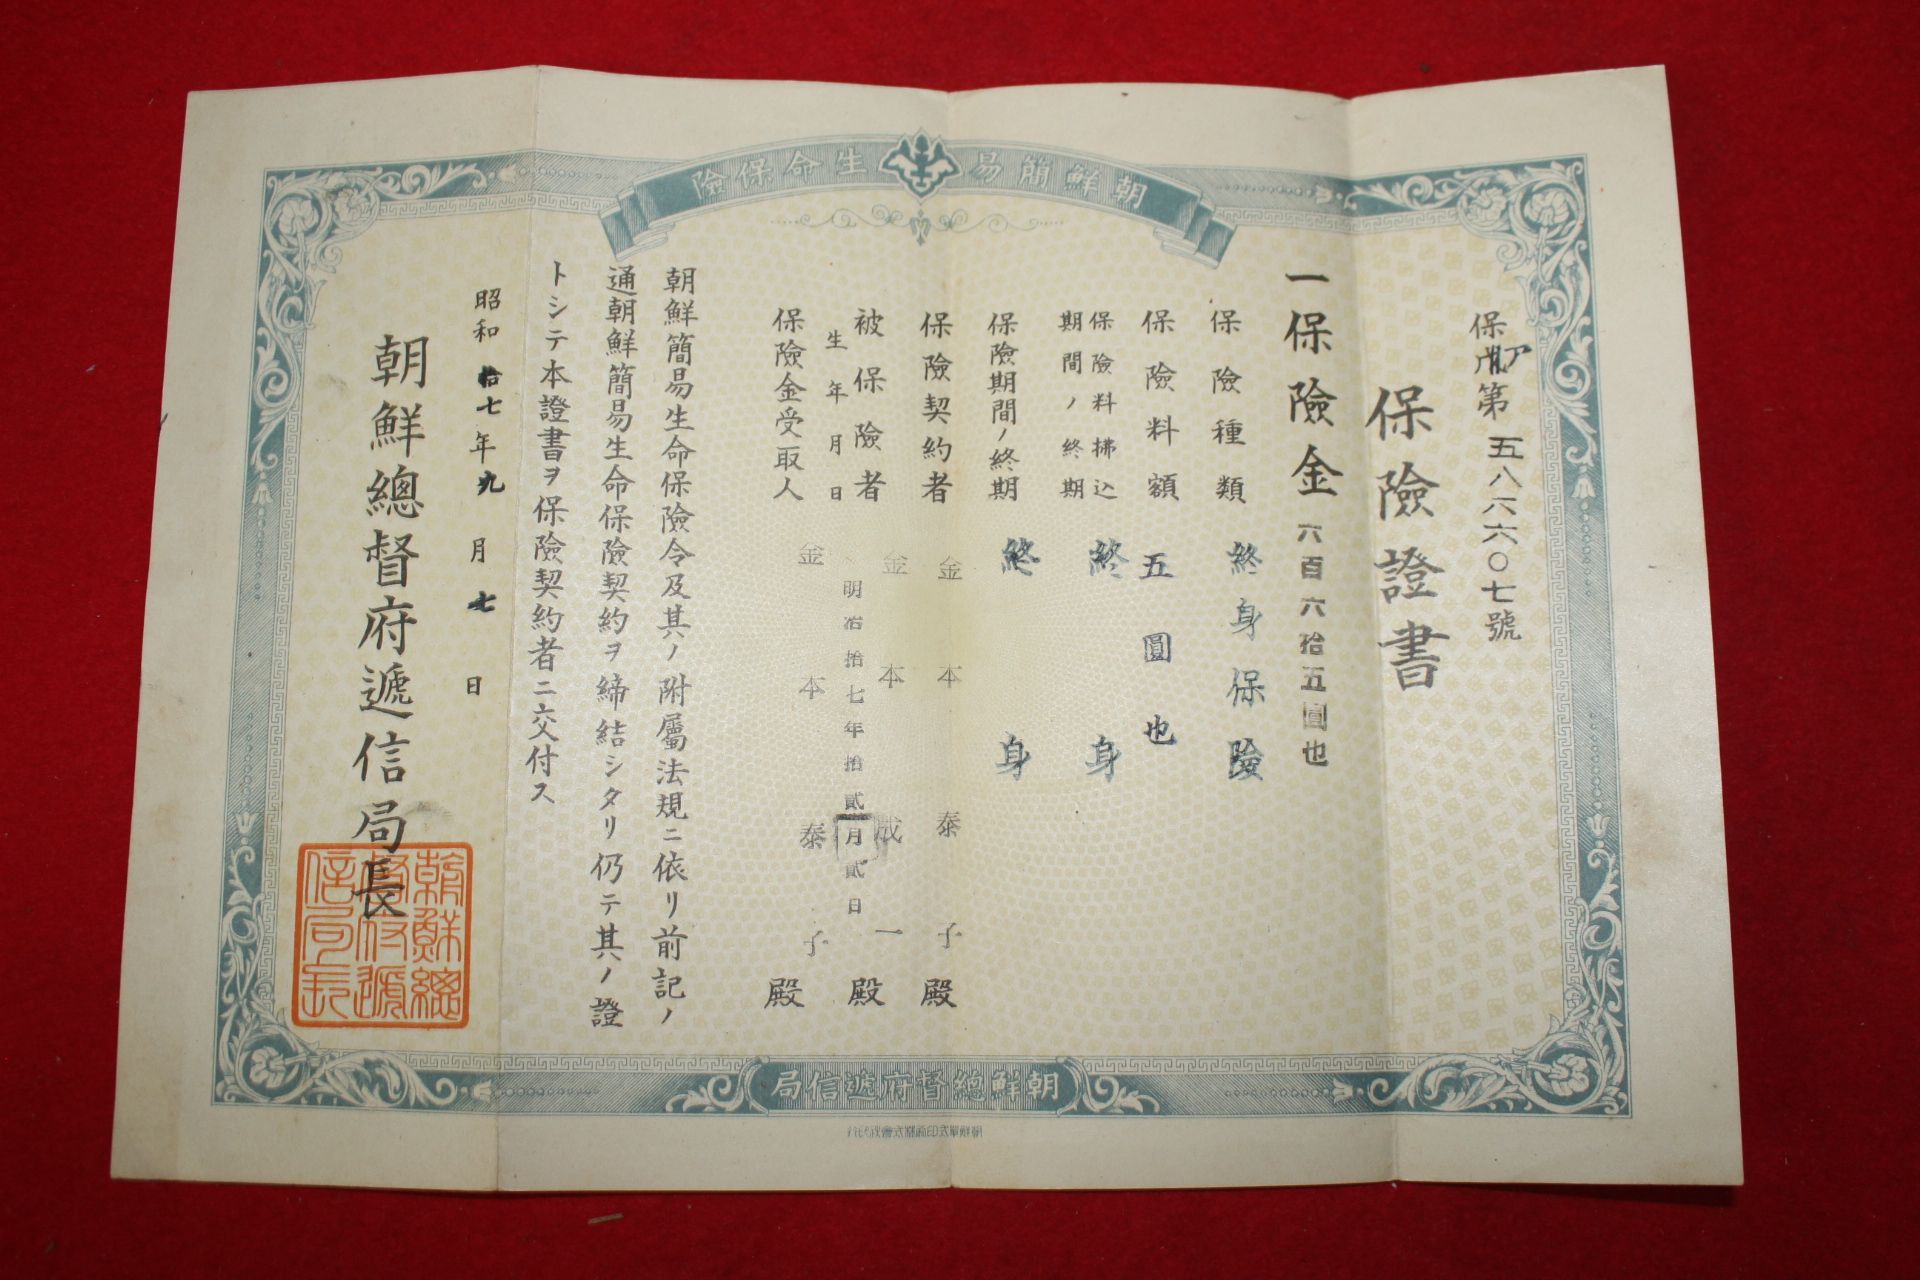 朝鮮簡易生命保險
保險證書
第五八六六〇七號
一保險金 六百六拾五圓也
保險種類 終身保險
保險料額 五圓也
保險料拂込
期間ノ終期 終身
保險期間ノ終期 終身
保險契約者 金本泰子殿
被保險者 金本成一殿
生年月日 明治拾七年拾貳月貳日
保險金受取人 金本泰子殿
朝鮮簡易生命保險令及其ノ附屬法規ニ依リ前記ノ
通朝鮮簡易生命保險契約ヲ締結シタリ仍テ其ノ證
トシテ本證書ヲ保險契約者ニ交付ス
昭和拾七年九月七日
朝鮮總督府遞信局長
朝鮮總督府遞信局長
朝鮮總督府遞信局